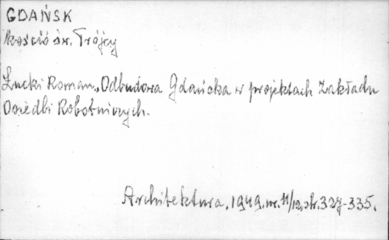 GDAŃSK
Kościół św. Trójcy
Łucki Roman, Odbudowa Gdańska w projektach Zakładu
Osiedli Robotniczych.
Architektura, 1949, nr. 11/12, str. 327-335.